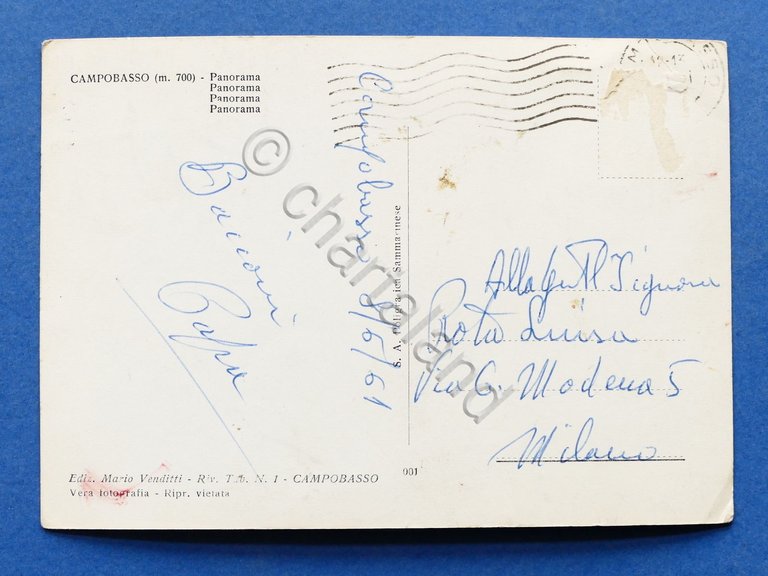 CAMPOBASSO (m. 700) - Panorama
Panorama
Panorama
Panorama
Bacioni
Campobasso 9/6/61
S. A. Poligrafica Sammarinese
Alla Gentl Signora
Prota Luisa
Via G. Modena 5
Milano
Ediz. Mario Venditti - Riv. Tab. N. 1 - CAMPOBASSO
001
Vera fotografia - Ripr. vietata
© chartaland